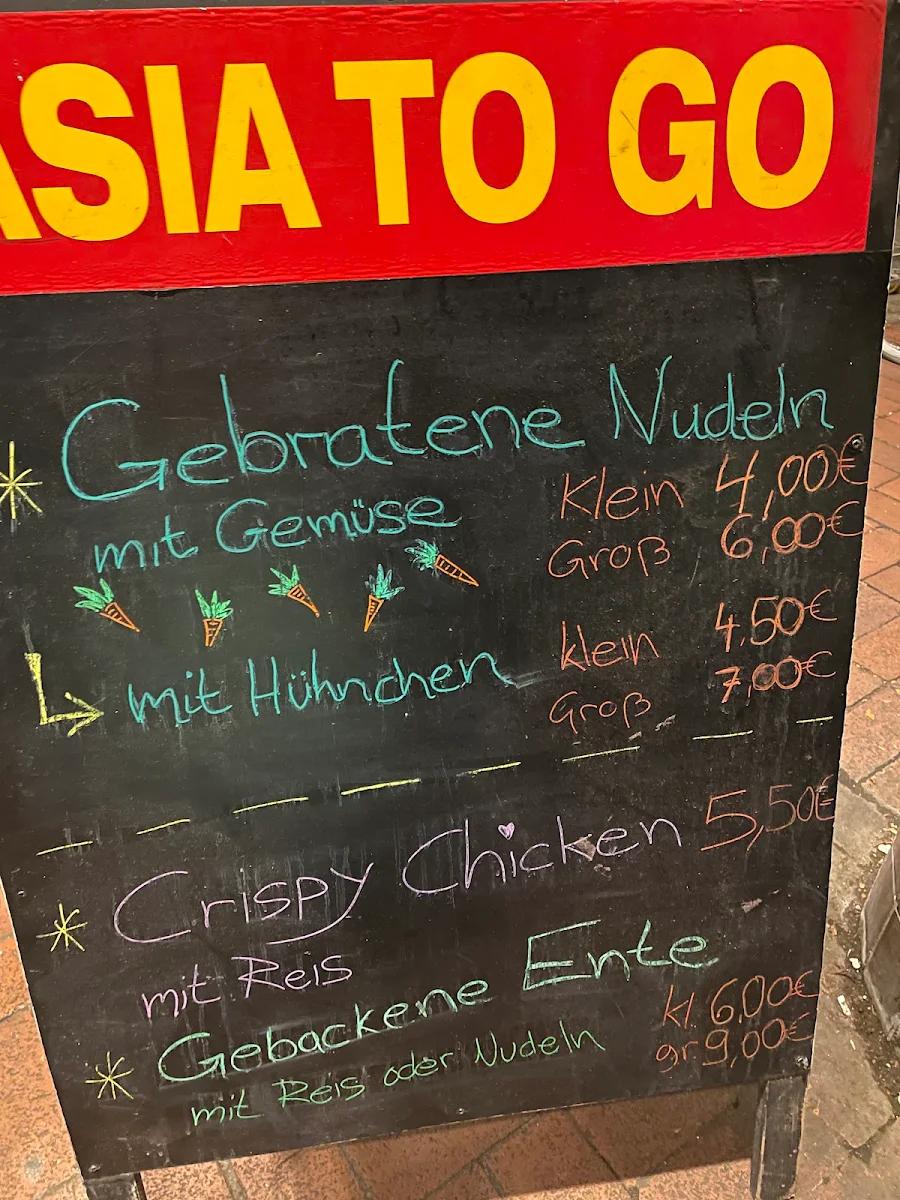 ASIA TO GO
* Gebratene Nudeln
mit Gemüse
Klein 4,00€
Groß 6,00€
mit Hühnchen
klein 4,50€
Groß 7,00€
* Crispy Chicken 5,50€
mit Reis
* Gebackene Ente
mit Reis oder Nudeln
kl. 6,00€
gr. 9,00€